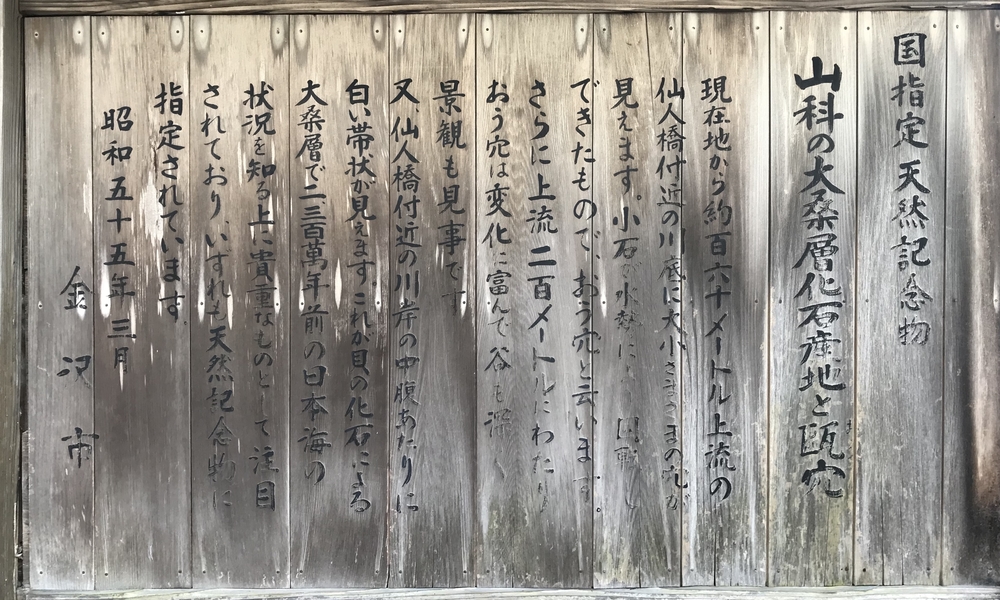 国指定天然記念物
山科の大桑層化石産地と甌穴
現在地から約百六十メートル上流の
仙人橋付近の川底に大小さまざまの穴が
見えます。小石が水勢によ 回転し
できたもので、おう穴と云います。
さらに上流二百メートルにわたり
おう穴は変化に富んで谷も深く
景観も見事です
又仙人橋付近の川岸の中腹あたりに
白い帯状が見えます。これが貝の化石による
大桑層で二、三百萬年前の日本海の
状況を知る上に貴重なものとして注目
されており、いずれも天然記念物に
指定されています。
昭和五十五年三月
金沢市